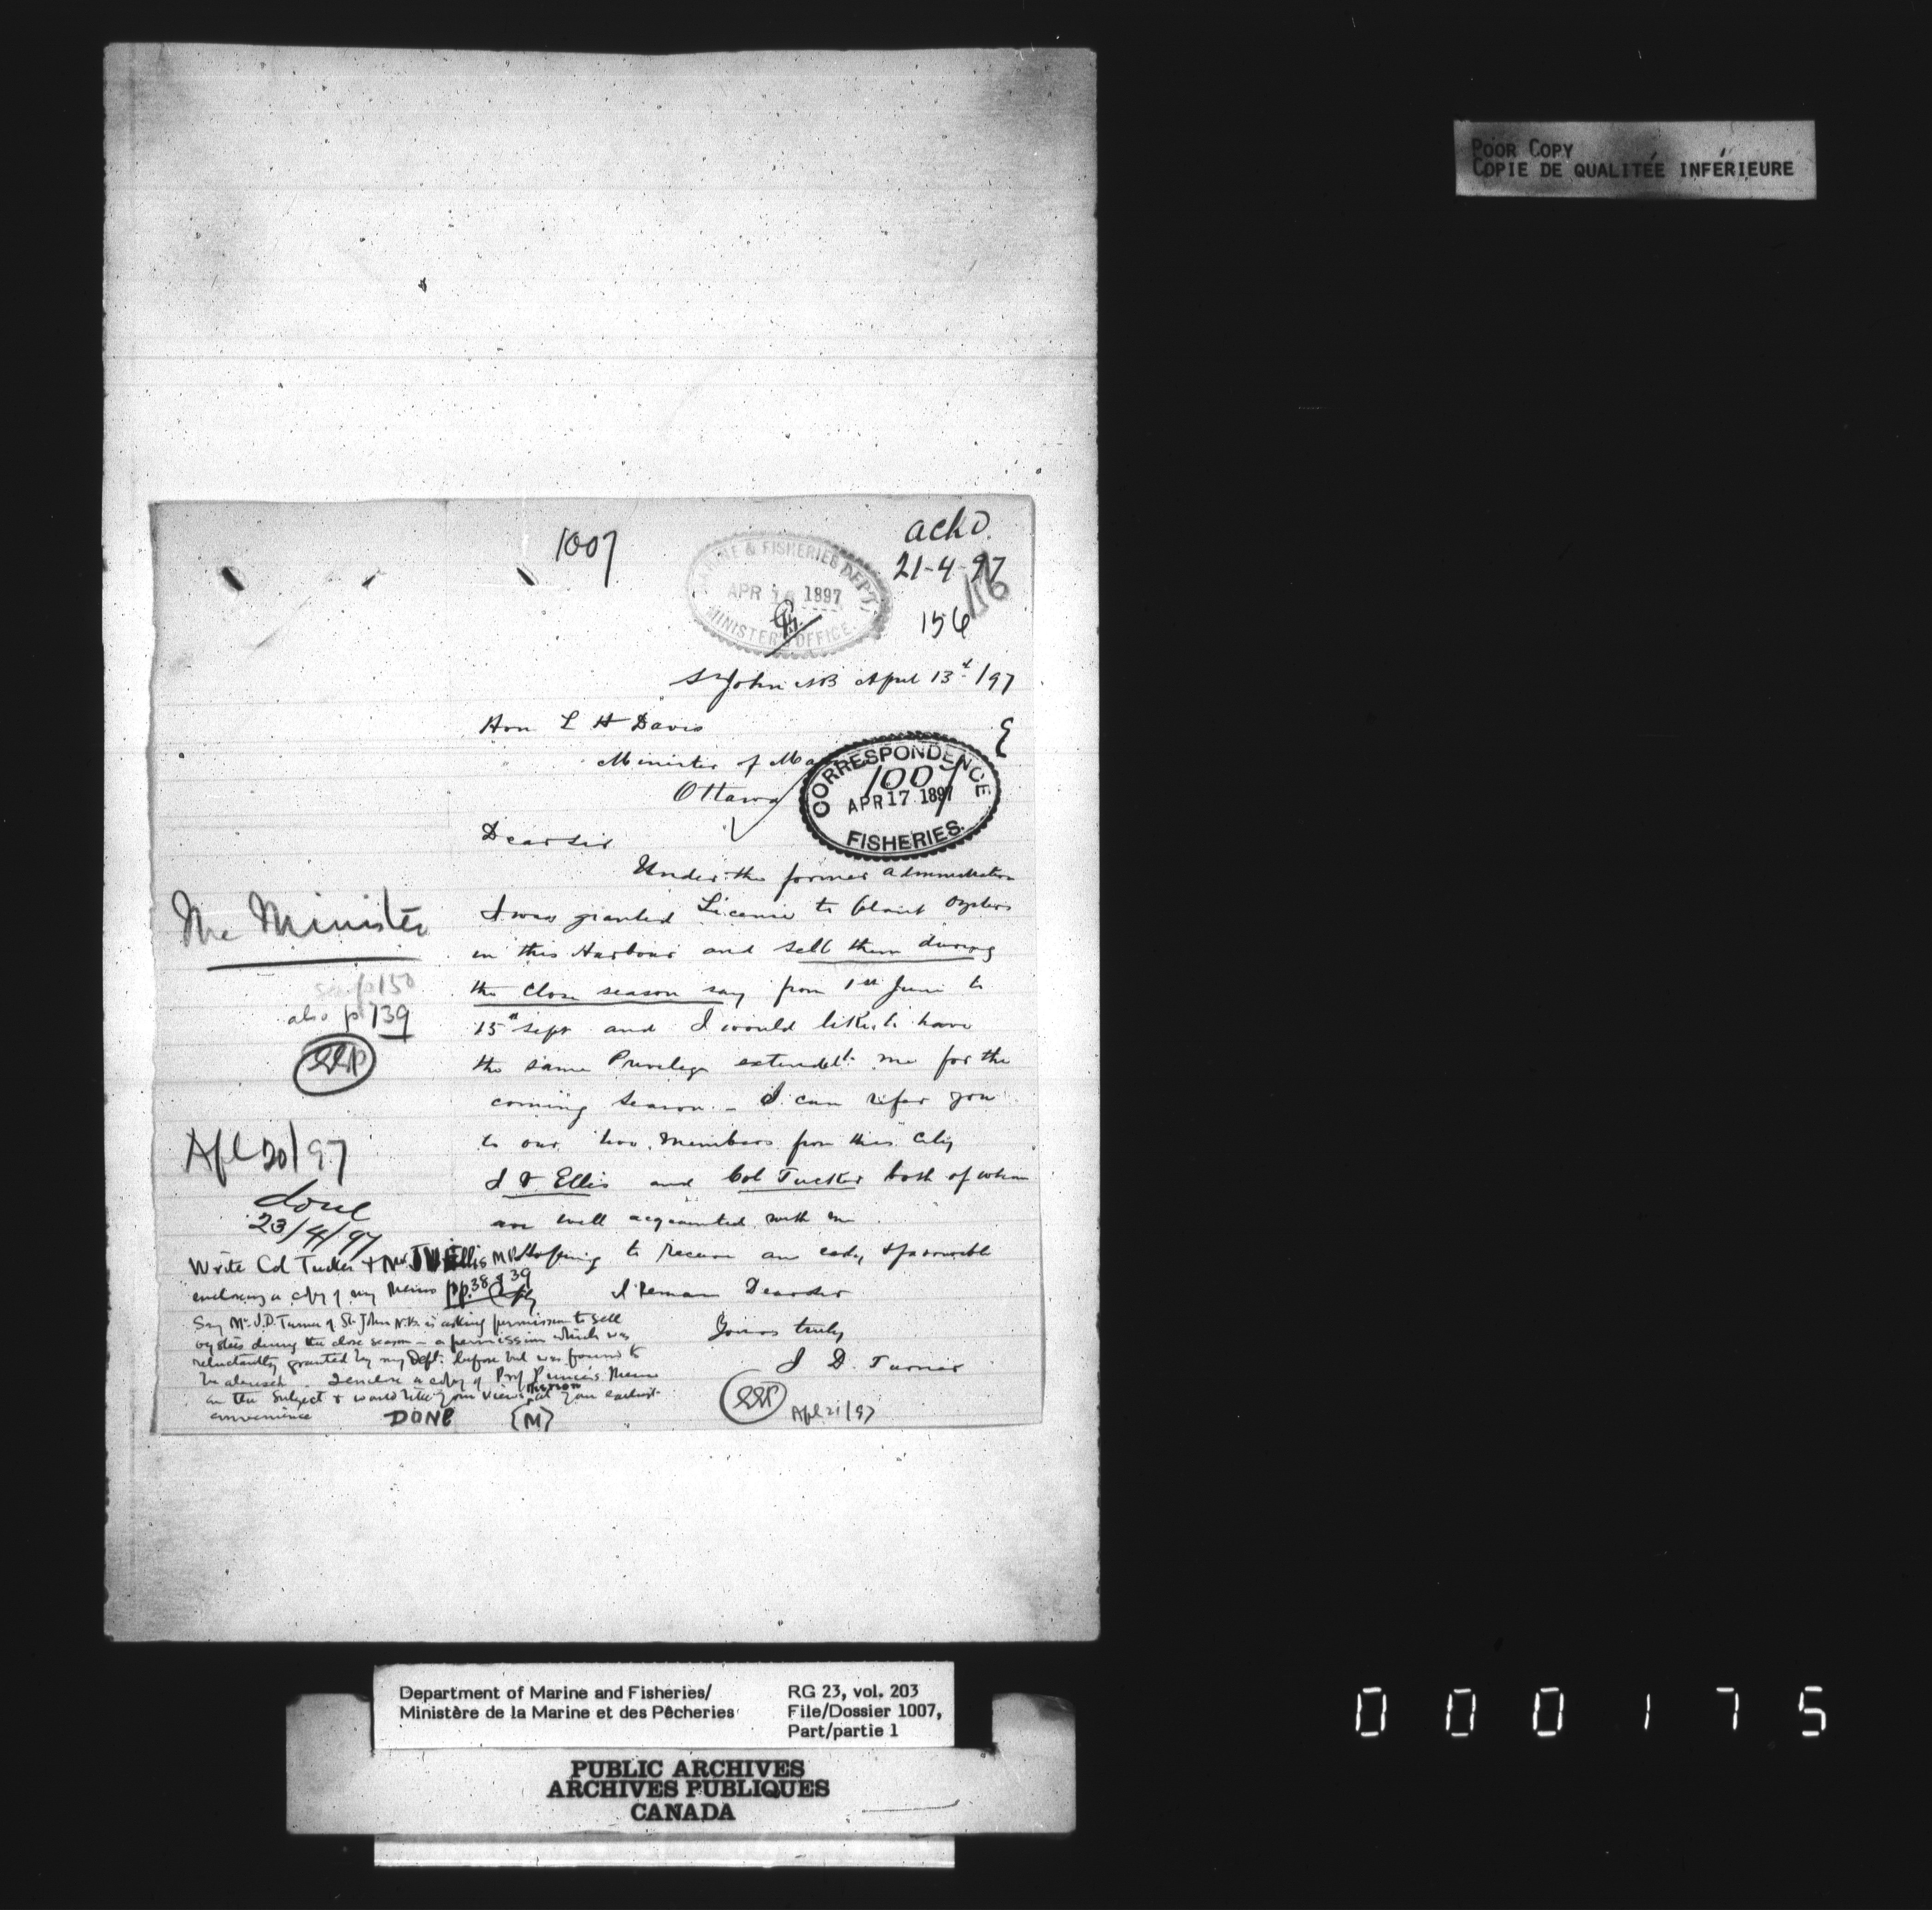 POOR COPY
COPIE DE QUALITÉE INFÉRIEURE
1007
ackd.
21-4-97
MARINE & FISHERIES DEPT.
APR 16 1897
MINISTER'S OFFICE.
156
St John NB April 13th /97
Hon L H Davis
Minister of Ma
Ottawa
CORRESPONDENCE
1007
APR 17 1897
FISHERIES.
Dear Sir
Under the former administration
I was granted License to plant oysters
in this Harbour and sell them during
the close season say from 1st June to
15th Sept and I would like to have
the same Privilege extended to me for the
coming season - I can refer you
to our two Members from this City
J V Ellis and Col Tucker both of whom
are well acquainted with me
Hoping to receive an early & favourable
I Remain Dear Sir
Yours truly
J D Turner
Apl 21/97
The Minister
see p 150
also p 139
EEP
Apl 20/97
done
23/4/97
Write Col Tucker & Mr J V Ellis M.P.
enclosing a copy of my Memo pp. 38 & 39
Say Mr J.D. Turner of St. John N.B. is asking permission to sell
oysters during the close season - a permission which was
reluctantly granted by my Dept. before but was found to
be abused. I enclose a copy of Prof Prince's Memo
on the subject & would like your views thereon at your earliest
convenience
DONE
(M)
EEP
Department of Marine and Fisheries/
Ministère de la Marine et des Pêcheries
RG 23, vol. 203
File/Dossier 1007,
Part/partie 1
PUBLIC ARCHIVES
ARCHIVES PUBLIQUES
CANADA
000175